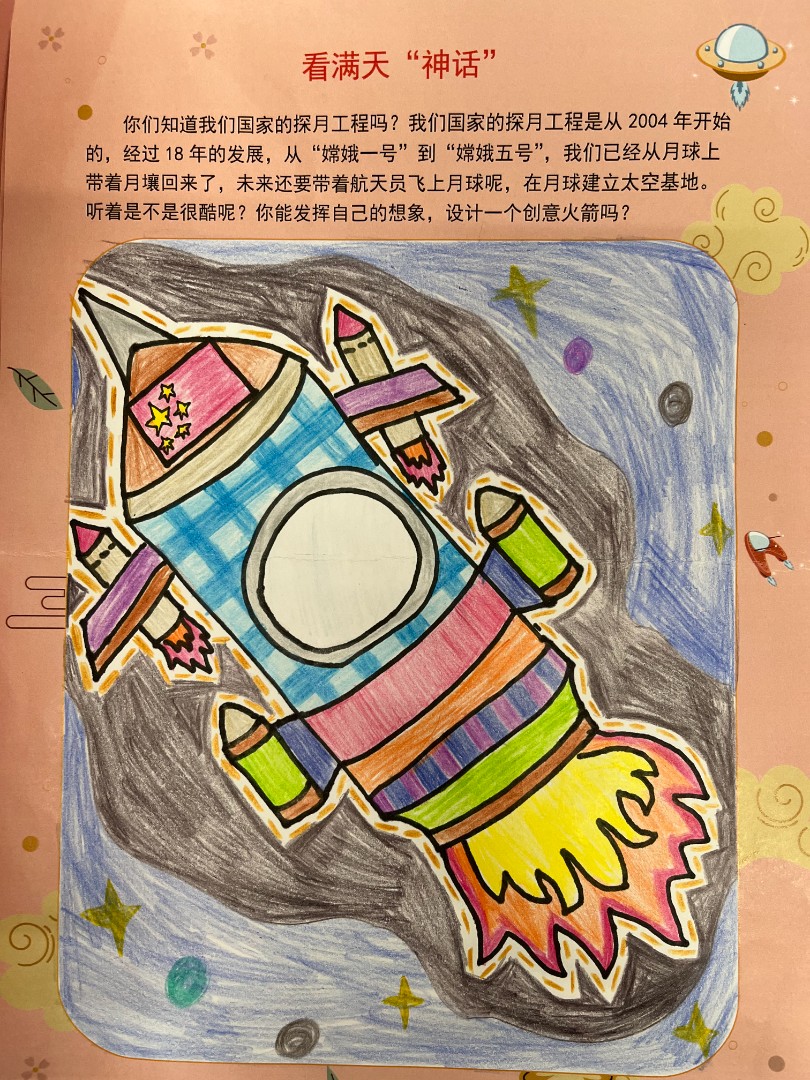 看满天“神话”
你们知道我们国家的探月工程吗？我们国家的探月工程是从 2004 年开始
的，经过 18 年的发展，从“嫦娥一号”到“嫦娥五号”，我们已经从月球上
带着月壤回来了，未来还要带着航天员飞上月球呢，在月球建立太空基地。
听着是不是很酷呢？你能发挥自己的想象，设计一个创意火箭吗？